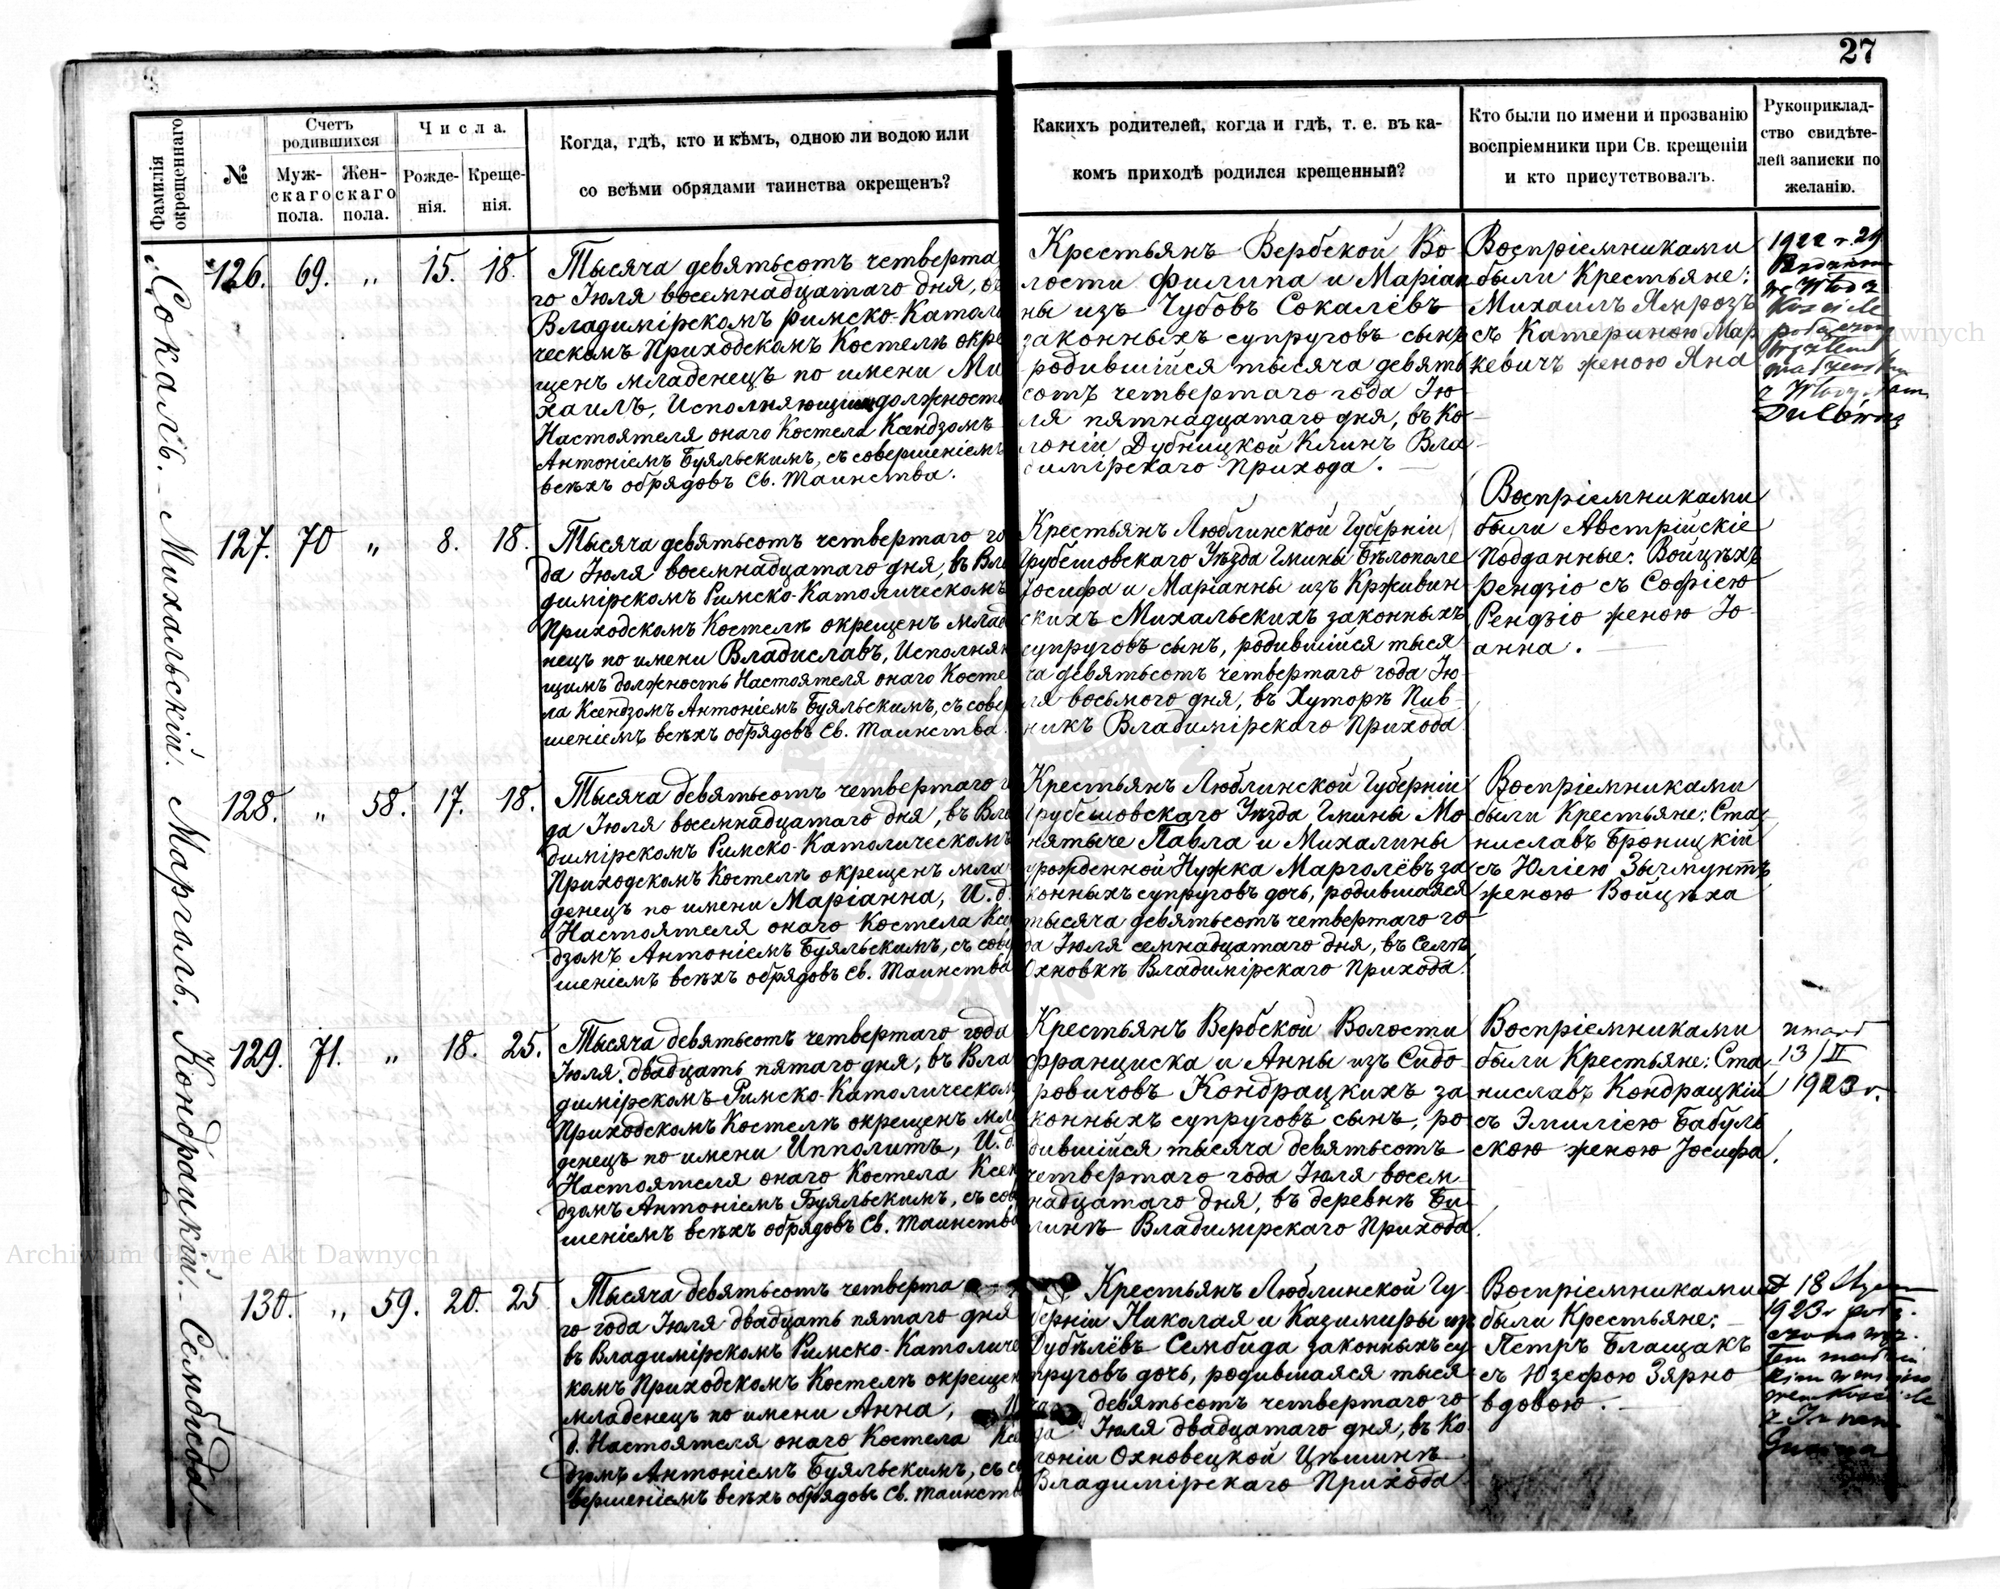 27
Фамилія
окрещеннаго
№
Счетъ
родившихся
Муж-
скаго
пола.
Жен-
скаго
пола.
Числа.
Рожде-
нія.
Креще-
нія.
Когда, гдѣ, кто и кѣмъ, одною ли водою или
со всѣми обрядами таинства окрещенъ?
Какихъ родителей, когда и гдѣ, т. е. въ ка-
комъ приходѣ родился крещенный?
Кто были по имени и прозванію
воспріемники при Св. крещеніи
и кто присутствовалъ.
Рукоприклад-
ство свидѣте-
лей записки по
желанію.
Сокалѣв. - Михальскій. Марголь. Кондрацкій. - Сембида
126. 69. „ 15. 18.
Тысяча девятьсотъ четверта
го Іюля восемнадцатаго дня, въ
Владимірскомъ Римско-Католи
ческомъ Приходскомъ Костелѣ окре
щенъ младенецъ по имени Ми
хаилъ, Исполняющимъ должность
Настоятеля онаго Костела Ксендзомъ
Антоніемъ Буяльскимъ, съ совершеніемъ
всѣхъ обрядовъ Св. Таинства.
Крестьянъ Вербской Во
лости Филипа и Маріан
ны изъ Чубовъ Сокалёвъ
законныхъ супруговъ сынъ
родившійся тысяча девять
сотъ четвертаго года Ію
ля пятнадцатаго дня, въ Ко
лоніи Дубницкой Клинъ Вла
димірскаго Прихода. —
Воспріемниками
были Крестьяне:
Михаилъ Ямрозъ
съ Катериною Мар
кевичъ женою Яна
1922 r. 29
127. 70 „ 8. 18.
Тысяча девятьсотъ четвертаго го
да Іюля восемнадцатаго дня, въ Вла
димірскомъ Римско-Католическомъ
Приходскомъ Костелѣ окрещенъ млад
нецъ по имени Владиславъ, Исполня
щимъ должность Настоятеля онаго Косте
ла Ксендзомъ Антоніемъ Буяльскимъ, съ сове
шеніемъ всѣхъ обрядовъ Св. Таинства.
Крестьянъ Люблинской Губерніи
Грубешовскаго Уѣзда Гмины Бѣлополе
Іосифа и Маріанны изъ Крживин
скихъ Михальскихъ законныхъ
супруговъ сынъ, родившійся тыся
ча девятьсотъ четвертаго года Ію
ля восьмого дня, въ Хуторѣ Пив-
никъ Владимірскаго Прихода
Воспріемниками
были Австрійскіе
Подданные: Войцѣхъ
Рендзіо съ Софіею
Рендзіо женою Іо-
анна.
128. „ 58. 17. 18.
Тысяча девятьсотъ четвертаго г
да Іюля восемнадцатаго дня, въ Вла
димірскомъ Римско-Католическомъ
Приходскомъ Костелѣ окрещенъ мла
денецъ по имени Маріанна, И. д.
Настоятеля онаго Костела Ксен
дзомъ Антоніемъ Буяльскимъ, съ сове
шеніемъ всѣхъ обрядовъ Св. Таинства
Крестьянъ Люблинской Губерніи
Грубешовскаго Уѣзда Гмины Мо
нятыче Павла и Михалины
урожденной Нужка Марголёвъ за
конныхъ супруговъ дочь, родившаяся
тысяча девятьсотъ четвертаго го
да Іюля семнадцатаго дня, въ Селѣ
Охновкѣ Владимірскаго Прихода.
Воспріемниками
были Крестьяне: Ста
ниславъ Броницкій
съ Юліею Зыгмунтъ
женою Войцѣха
129. 71. „ 18. 25.
Тысяча девятьсотъ четвертаго года
Іюля двадцать пятаго дня, въ Вла
димірскомъ Римско-Католическом
Приходскомъ Костелѣ окрещенъ мла
денецъ по имени Ипполитъ, И. д.
Настоятеля онаго Костела Ксен
дзомъ Антоніемъ Буяльскимъ, съ сов
шеніемъ всѣхъ обрядовъ Св. Таинства
Крестьянъ Вербской Волости
Франциска и Анны изъ Сидо
ровичовъ Кондрацкихъ за
конныхъ супруговъ сынъ, ро
дившійся тысяча девятьсотъ
четвертаго года Іюля восем
надцатаго дня, въ деревнѣ Би
линѣ Владимірскаго Прихода.
Воспріемниками
были Крестьяне: Ста
ниславъ Кондрацкій
съ Эмиліею Бабуль
скою женою Іосифа.
umarł
13/II
1923 r.
130. „ 59. 20. 25
Тысяча девятьсотъ четверта
го года Іюля двадцать пятаго дня
въ Владимірскомъ Римско-Католиче
комъ Приходскомъ Костелѣ окрещен
младенецъ по имени Анна, И
д. Настоятеля онаго Костела Ксе
дзомъ Антоніемъ Буяльскимъ, съ с
вершеніемъ всѣхъ обрядовъ Св. Таинств
Крестьянъ Люблинской Гу-
берніи Николая и Казимиры изъ
Дубѣлёвъ Сембида законныхъ су
пруговъ дочь, родившаяся тыся
ча девятьсотъ четвертаго го
да Іюля двадцатаго дня, въ Ко
лоніи Охновецкой Цѣшинѣ
Владимірскаго Прихода
Воспріемниками
были Крестьяне:
Петръ Блащакъ
съ Юзефою Зярно
вдовою.
18
1923 r
Archiwum Główne Akt Dawnych